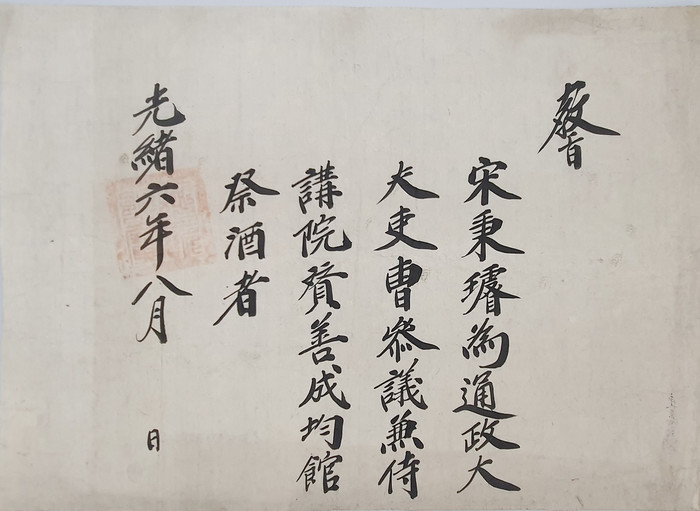 敎旨
宋秉璿為通政大
夫吏曹參議兼侍
講院贊善成均館
祭酒者
光緒六年八月 日